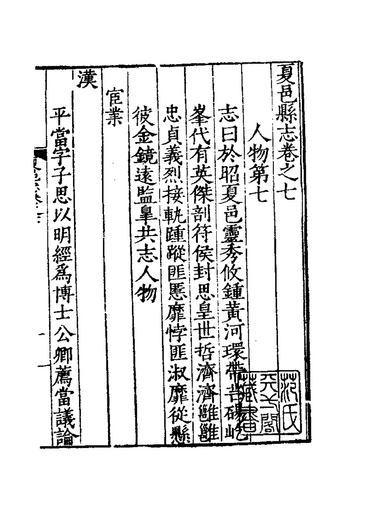 夏邑縣志卷之七
人物第七
志曰於昭夏邑靈秀攸鍾黃河環帶芒碭屹
峯代有英傑剖符侯封思皇世哲濟濟雝雝
忠貞義烈接軌踵蹤匪慝靡悖匪淑靡從懸
彼金鏡遠監皐共志人物
宦業
漢
平當字子思以明經為博士公卿薦當議論
范氏天一閣藏書